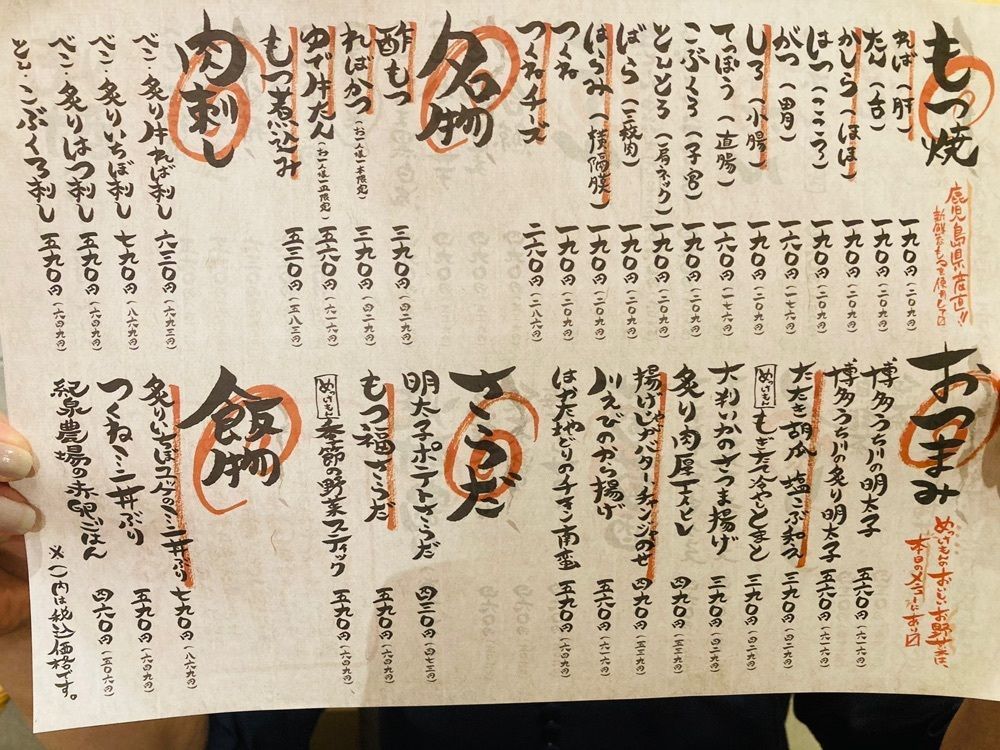 もつ焼
鹿児島県産直!!
新鮮なもつを使用して〼
れば（肝） 一九〇円（二〇九円）
たん（舌） 一九〇円（二〇九円）
かしら（ほほ） 一九〇円（二〇九円）
はつ（こころ） 一九〇円（二〇九円）
がつ（胃） 一六〇円（一七六円）
しろ（小腸） 一九〇円（二〇九円）
てっぽう（直腸） 一六〇円（一七六円）
こぶくろ（子宮） 一九〇円（二〇九円）
とんとろ（肩ネック） 一九〇円（二〇九円）
ばら（三枚肉） 一九〇円（二〇九円）
はらみ（横隔膜） 一九〇円（二〇九円）
つくね 一九〇円（二〇九円）
つくねチーズ 二六〇円（二八六円）
名物
酢もつ 三九〇円（四二九円）
ればかつ（お一人様一本限定） 三九〇円（四二九円）
ゆで牛たん（お一人様一皿限定） 五六〇円（六一六円）
もつ煮込み 五三〇円（五八三円）
肉刺し
べこ・炙り牛れば刺し 六三〇円（六九三円）
べこ・炙りいちぼ刺し 七九〇円（八六九円）
べこ・炙りはつ刺し 五九〇円（六四九円）
とと・こぶくろ刺し 五九〇円（六四九円）
おつまみ
めっけもんのおいしいお野菜は
本日のメニューにあり〼
博多うち川の明太子 五六〇円（六一六円）
博多うち川の炙り明太子 五六〇円（六一六円）
たたき胡瓜 塩こぶ和え 三九〇円（四二九円）
めっけもん もぎたて冷やしとまと 三九〇円（四二九円）
大判いかのさつま揚げ 三九〇円（四二九円）
炙り肉厚えいひれ 四九〇円（五三九円）
揚げじゃがバターチャンジャのせ 四九〇円（五三九円）
川えびのから揚げ 五六〇円（六一六円）
はかた地どりのチキン南蛮 五九〇円（六四九円）
さらだ
明太子ポテトさらだ 四三〇円（四七三円）
もつ福さらだ 五九〇円（六四九円）
めっけもん 季節の野菜スティック 五九〇円（六四九円）
飯物
炙りいちぼユッケのミニ丼ぶり 七九〇円（八六九円）
つくねミニ丼ぶり 五九〇円（六四九円）
紀泉農場の赤卵ごはん 四六〇円（五〇六円）
※（ ）内は税込価格です。